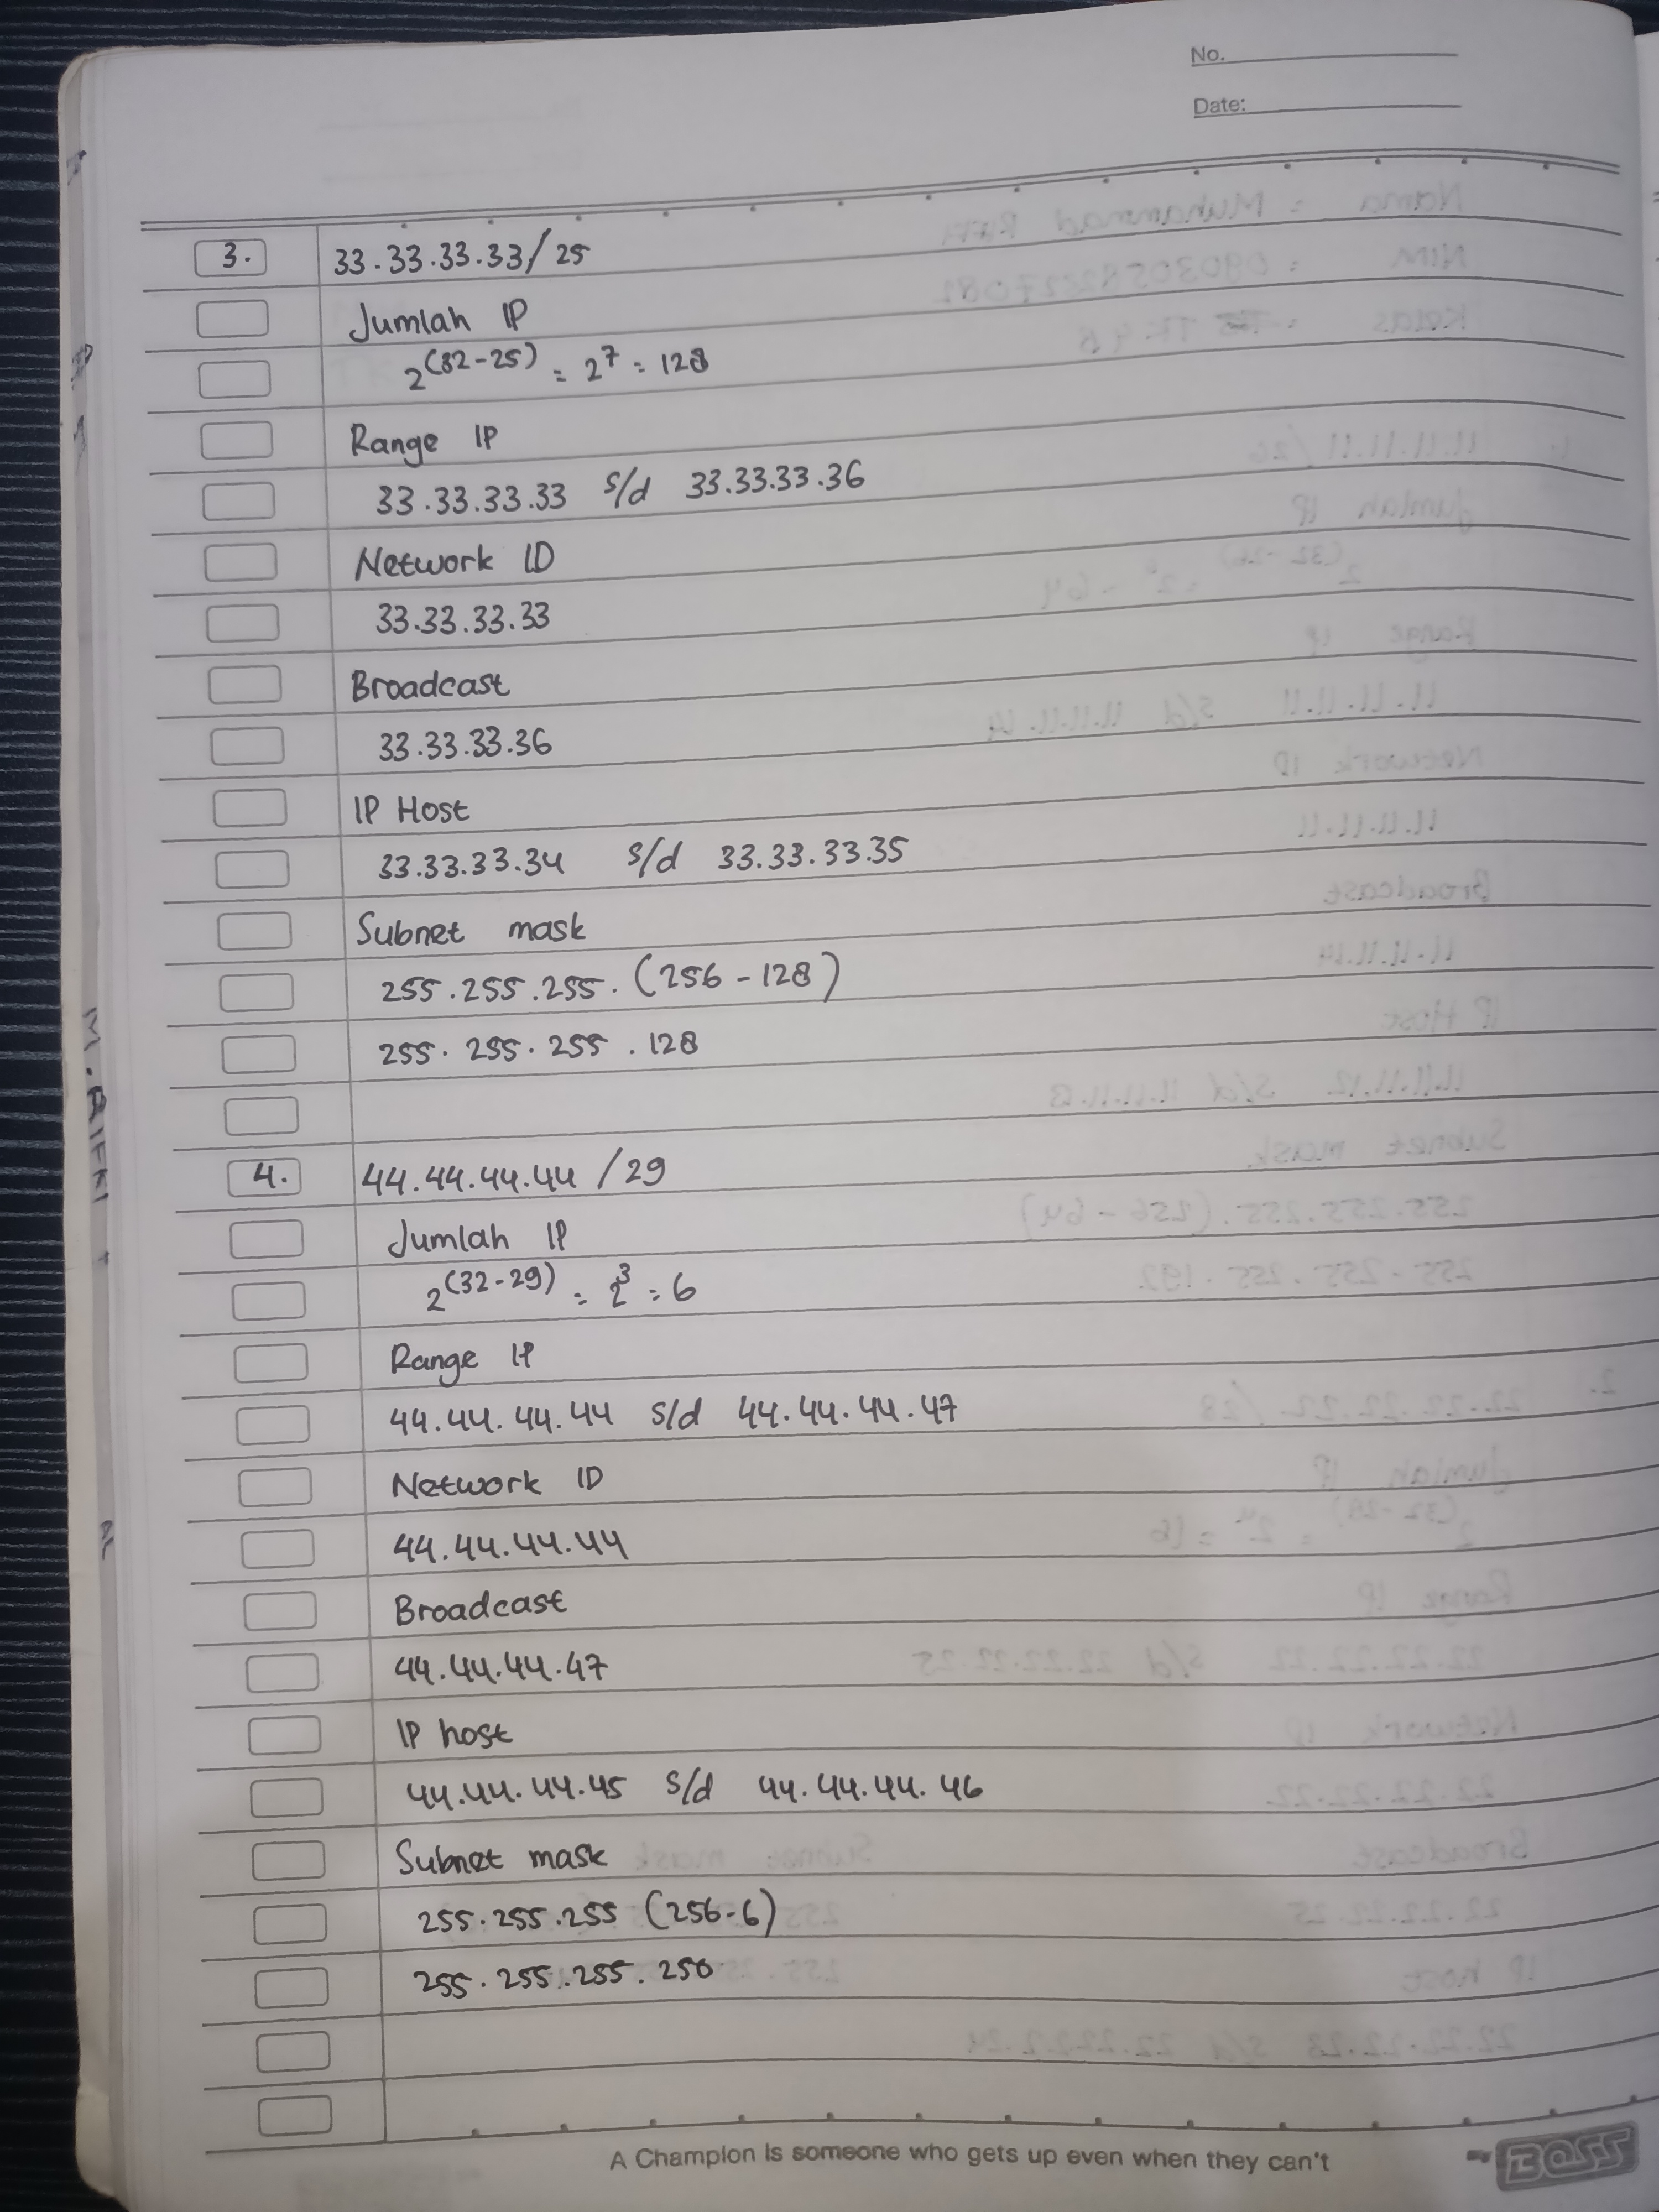 No.
Date:
3. 33.33.33.33/25
Jumlah IP
2^(32-25) = 2^7 = 128
Range IP
33.33.33.33 s/d 33.33.33.36
Network ID
33.33.33.33
Broadcast
33.33.33.36
IP Host
33.33.33.34 s/d 33.33.33.35
Subnet mask
255.255.255.(256-128)
255.255.255.128
4. 44.44.44.44 /29
Jumlah IP
2^(32-29) = 2^3 = 6
Range IP
44.44.44.44 s/d 44.44.44.47
Network ID
44.44.44.44
Broadcast
44.44.44.47
IP host
44.44.44.45 s/d 44.44.44.46
Subnet mask
255.255.255 (256-6)
255.255.255.250
A Champion is someone who gets up even when they can't
my BOSS
M.RIFKI